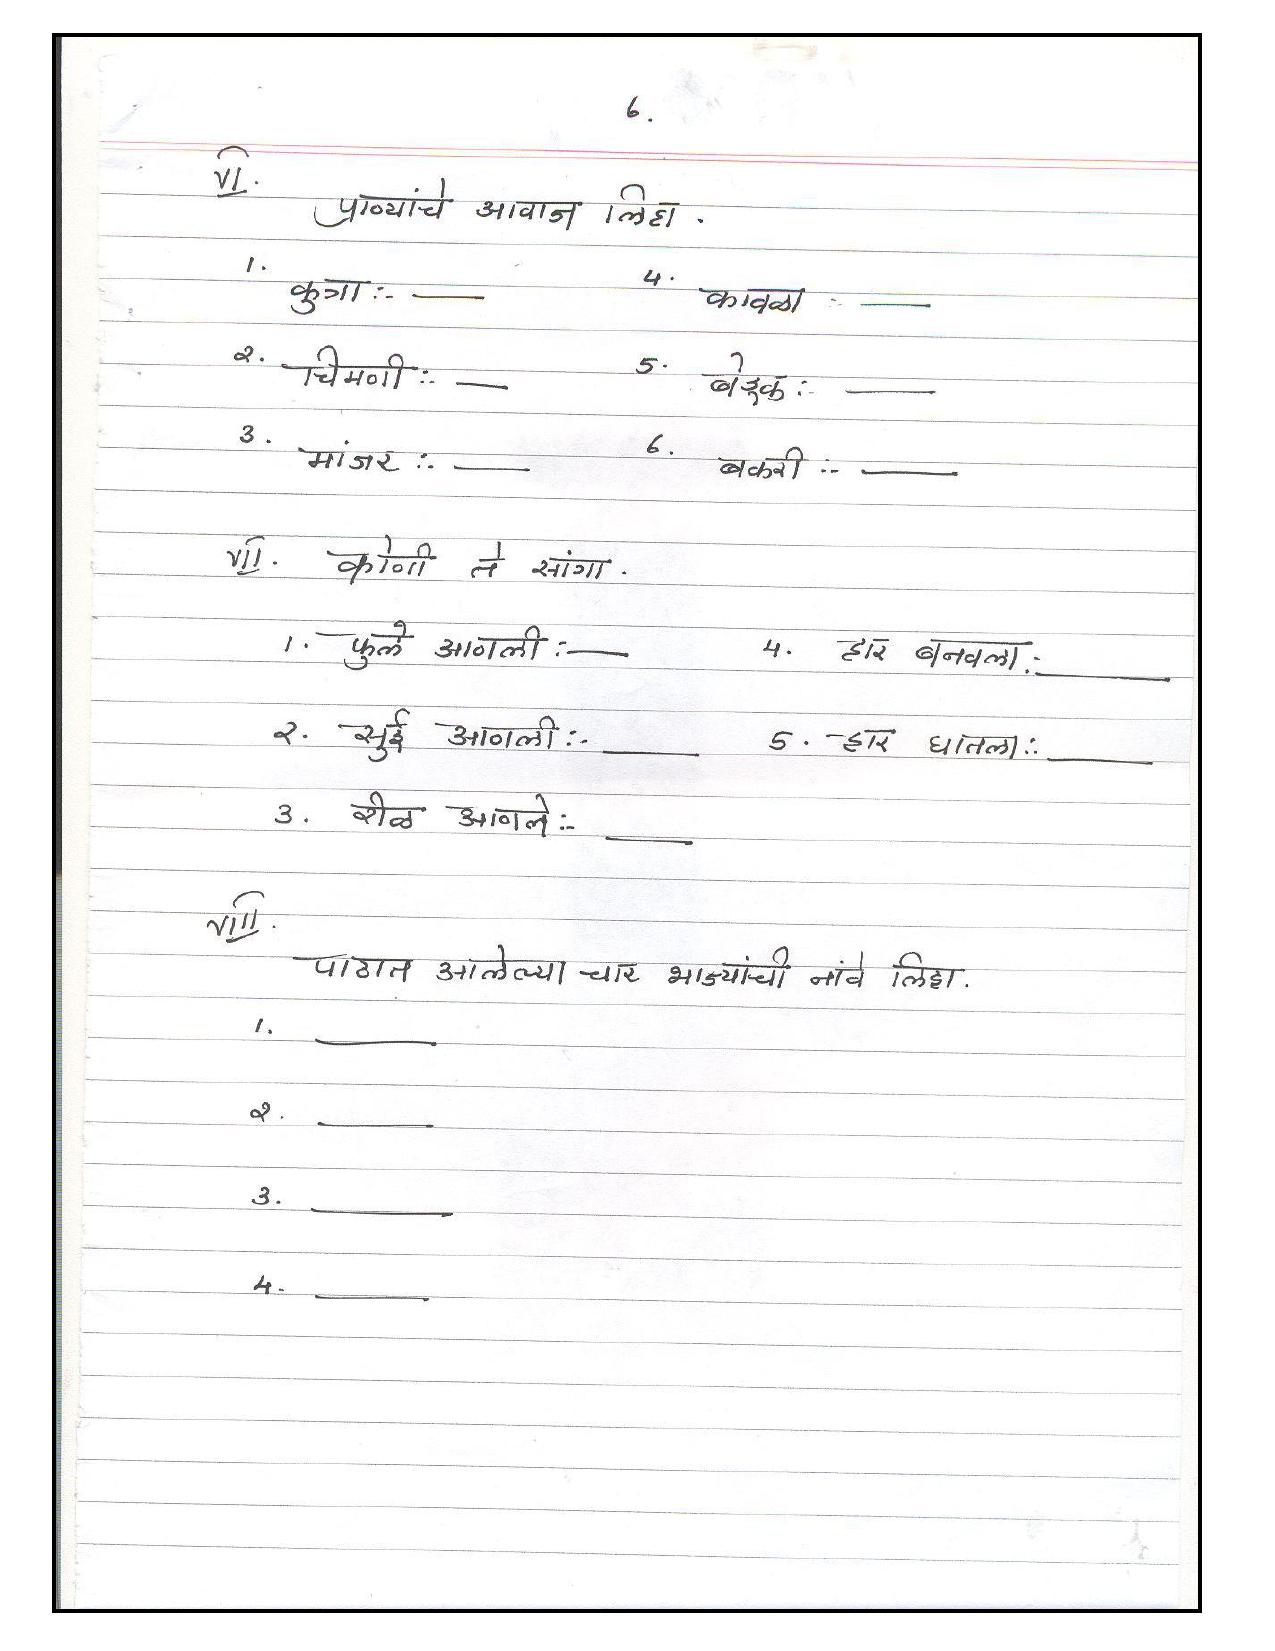 6.
VI.
प्राण्यांचे आवाज लिहा.
1. कुत्रा :- ____ 4. कावळा :- ____
२. चिमणी :- ____ 5. बेडूक :- ____
3. मांजर :- ____ 6. बकरी :- ____
VII. कोणी ते सांगा.
1. फुले आणली :- ____ 4. हार बनवला :- ____
२. सुई आणली :- ____ 5. हार घातला :- ____
3. रीळ आणले :- ____
VIII.
पाठात आलेल्या चार भाज्यांची नांवे लिहा.
1. ____
२. ____
3. ____
4. ____